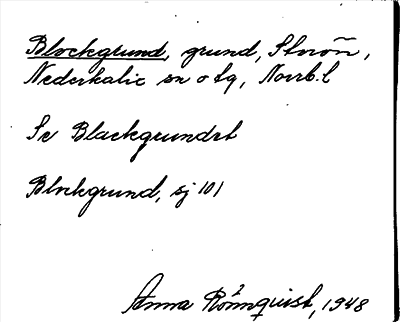 Blockgrund, grund, Storön,
Nederkalix sn o tg, Norrb. l
Se Blackgrundet
Blockgrund, sj 101
Anna Rönnquist, 1948